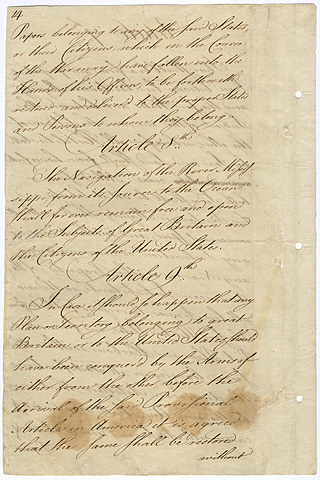 14
Papers belonging to any of the said States,
or their Citizens, which in the Course
of the War may have fallen into the
Hands of his Officers, to be forthwith
restored and deliver'd to the proper States
and Persons to whom they belong.
Article 8th.
The Navigation of the River Missis-
sippi from its Source to the Ocean
shall forever remain free and open
to the Subjects of Great Britain and
the Citizens of the United States.
Article 9th.
In Case it should so happen that any
Place or Territory belonging to great
Britain or to the United States should
have been conquer'd by the Arms of
either from the other before the
Arrival of the said Provisional
Articles in America it is agreed
that the same shall be restored
without